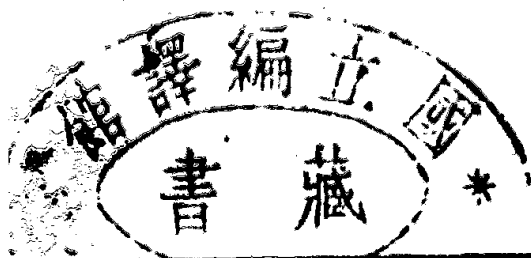 國立編譯館
藏書